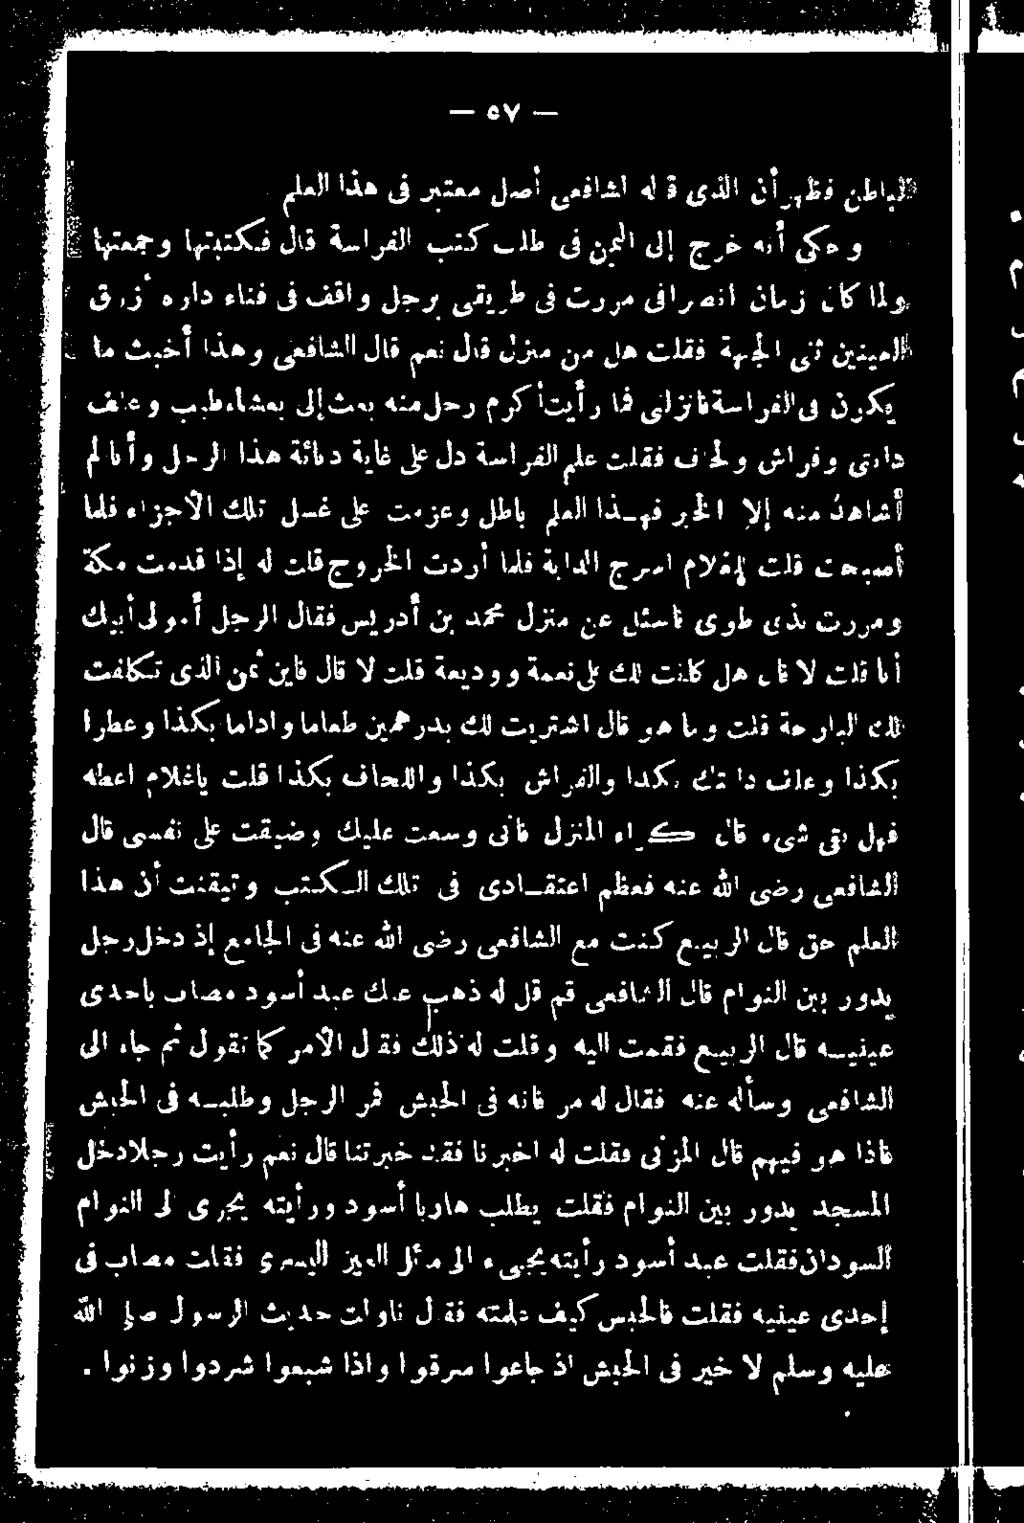 — ٥٧ —
الباطن فظهر أن الذى قاله الشافعى أصل معتبر فى هذا العلم
وحكى أنه خرج إلى اليمن فى طلب كتب الفراسة قال فكتبتها وجمعتها
ولما كان زمان انصرافى مررت فى طريقى برجل واقف فى فناء داره أزرق
العينين ناتئ الجبهة فقلت هل من منزل قال نعم قال الشافعى وهذا أخبث ما
يكون فى الفراسة فانزلنى فما رأيت أكرم رجل منه بعث إلى بعشاء وطيب وعلف
دابتى وفراش ولحاف فقلت علم الفراسة دل على غاية دناءة هذا الرجل وأنا لم
أشاهد منه إلا الخير فهذا العلم باطل وعزمت على غسل تلك الأجزاء فلما
أصبحت قلت للغلام اسرج الدابة فلما أردت الخروج قلت له إذا قدمت مكة
ومررت بذى طوى فاسئل عن منزل محمد بن أدريس فقال الرجل أمولى أبيك
أنا قلت لا قال هل كانت لك على نعمة ووديعة قلت لا قال فاين ثمن الذى تكلفت
لك البارحة قلت وما هو قال اشتريت لك بدرهمين طعاما واداما بكذا وعطرا
بكذا وعلف دابتك بكذا والفراش بكذا واللحاف بكذا قلت ياغلام اعطه
فهل بقى شىء قال كراء المنزل فانى وسعت عليك وضيقت على نفسى قال
الشافعى رضى الله عنه فعظم اعتقادى فى تلك الكتب وتيقنت أن هذا
العلم حق قال الربيع كنت مع الشافعى رضى الله عنه فى الجامع إذ دخل رجل
يدور بين النوام قال الشافعى قم قل له ذهب عنك عبد أسود مصاب باحدى
عينيه قال الربيع فقمت اليه وقلت له ذلك فقال الأمر كما تقول ثم جاء الى
الشافعى وسأله عنه فقال له مر فانه فى الحبش فمر الرجل وطلبه فى الحبش
فاذا هو فيهم قال المزنى فقلت له اخبرنا فقد خبرتنا قال نعم رأيت رجلا دخل
المسجد يدور بين النوام فقلت يطلب هاربا أسود ورأيته يجرى الى النوام
السودان فقلت عبد أسود رأيته يجىء الى مائل العين اليسرى فقلت مصاب فى
إحدى عينيه فقلت فالحبس كيف علمته فقال ناولت حديث الرسول صلى الله
عليه وسلم لا خير فى الحبش اذ جاعوا سرقوا واذا شبعوا شردوا وزنوا .